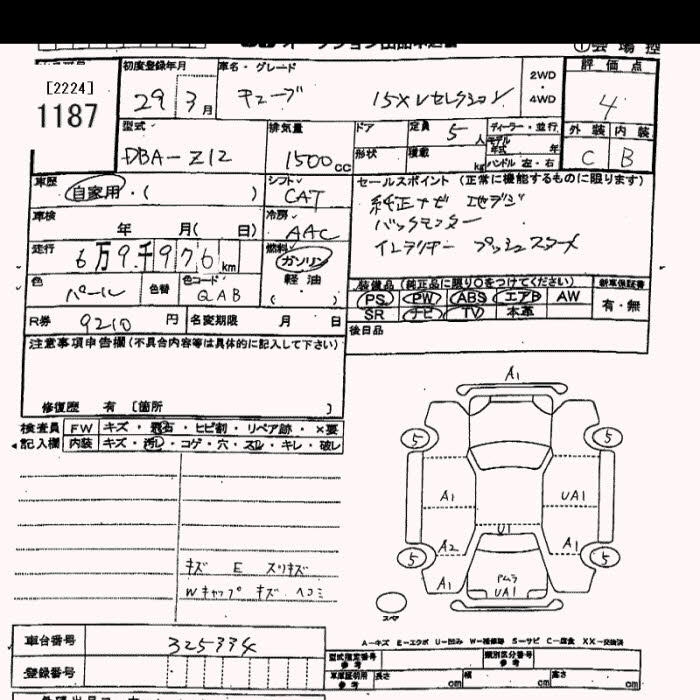 [2224]
1187
初度登録年月
29 3月
車名・グレード
キューブ 15XVセレクション
2WD
・
4WD
評価点
4
外装 内装
C B
型式
DBA-Z12
排気量
1500cc
ドア
形状
定員 5人
積載 kg
ディーラー・並行
モデル年式 年
ハンドル 左・右
車歴
自家用・( )
シフト
CAT
セールスポイント (正常に機能するものに限ります)
純正ナビ 地デジ
バックモニター
インテリキー プッシュスタート
車検
年 月( 日)
冷房
AAC
走行
6万9千976km
燃料
ガソリン
軽油
( )
色
パール
色替
色コード
QAB
装備品 (純正品に限り○をつけてください)
PS PW ABS エアB AW
SR ナビ TV 本革
新車保証書
有・無
R券 9210円
名変期限 月 日
後日品
注意事項申告欄(不具合内容等は具体的に記入して下さい)
修復歴 有 [箇所 ]
検査員記入欄
FW キズ・飛石・ヒビ割・リペア跡・×要
内装 キズ・汚レ・コゲ・穴・スレ・キレ・破レ
A1
5 5
A1 UA1
U1
A2 A1
5 5
A1
UA1
スペア
キズ E スリキズ
Wキャップ キズ ヘコミ
A-キズ E-エクボ U-凹み W-補修跡 S-サビ C-腐食 XX-交換済
車台番号 325334
登録番号
型式指定番号
参考
類別区分番号
参考
車庫証明用
参考
長さ cm 幅 cm 高さ cm